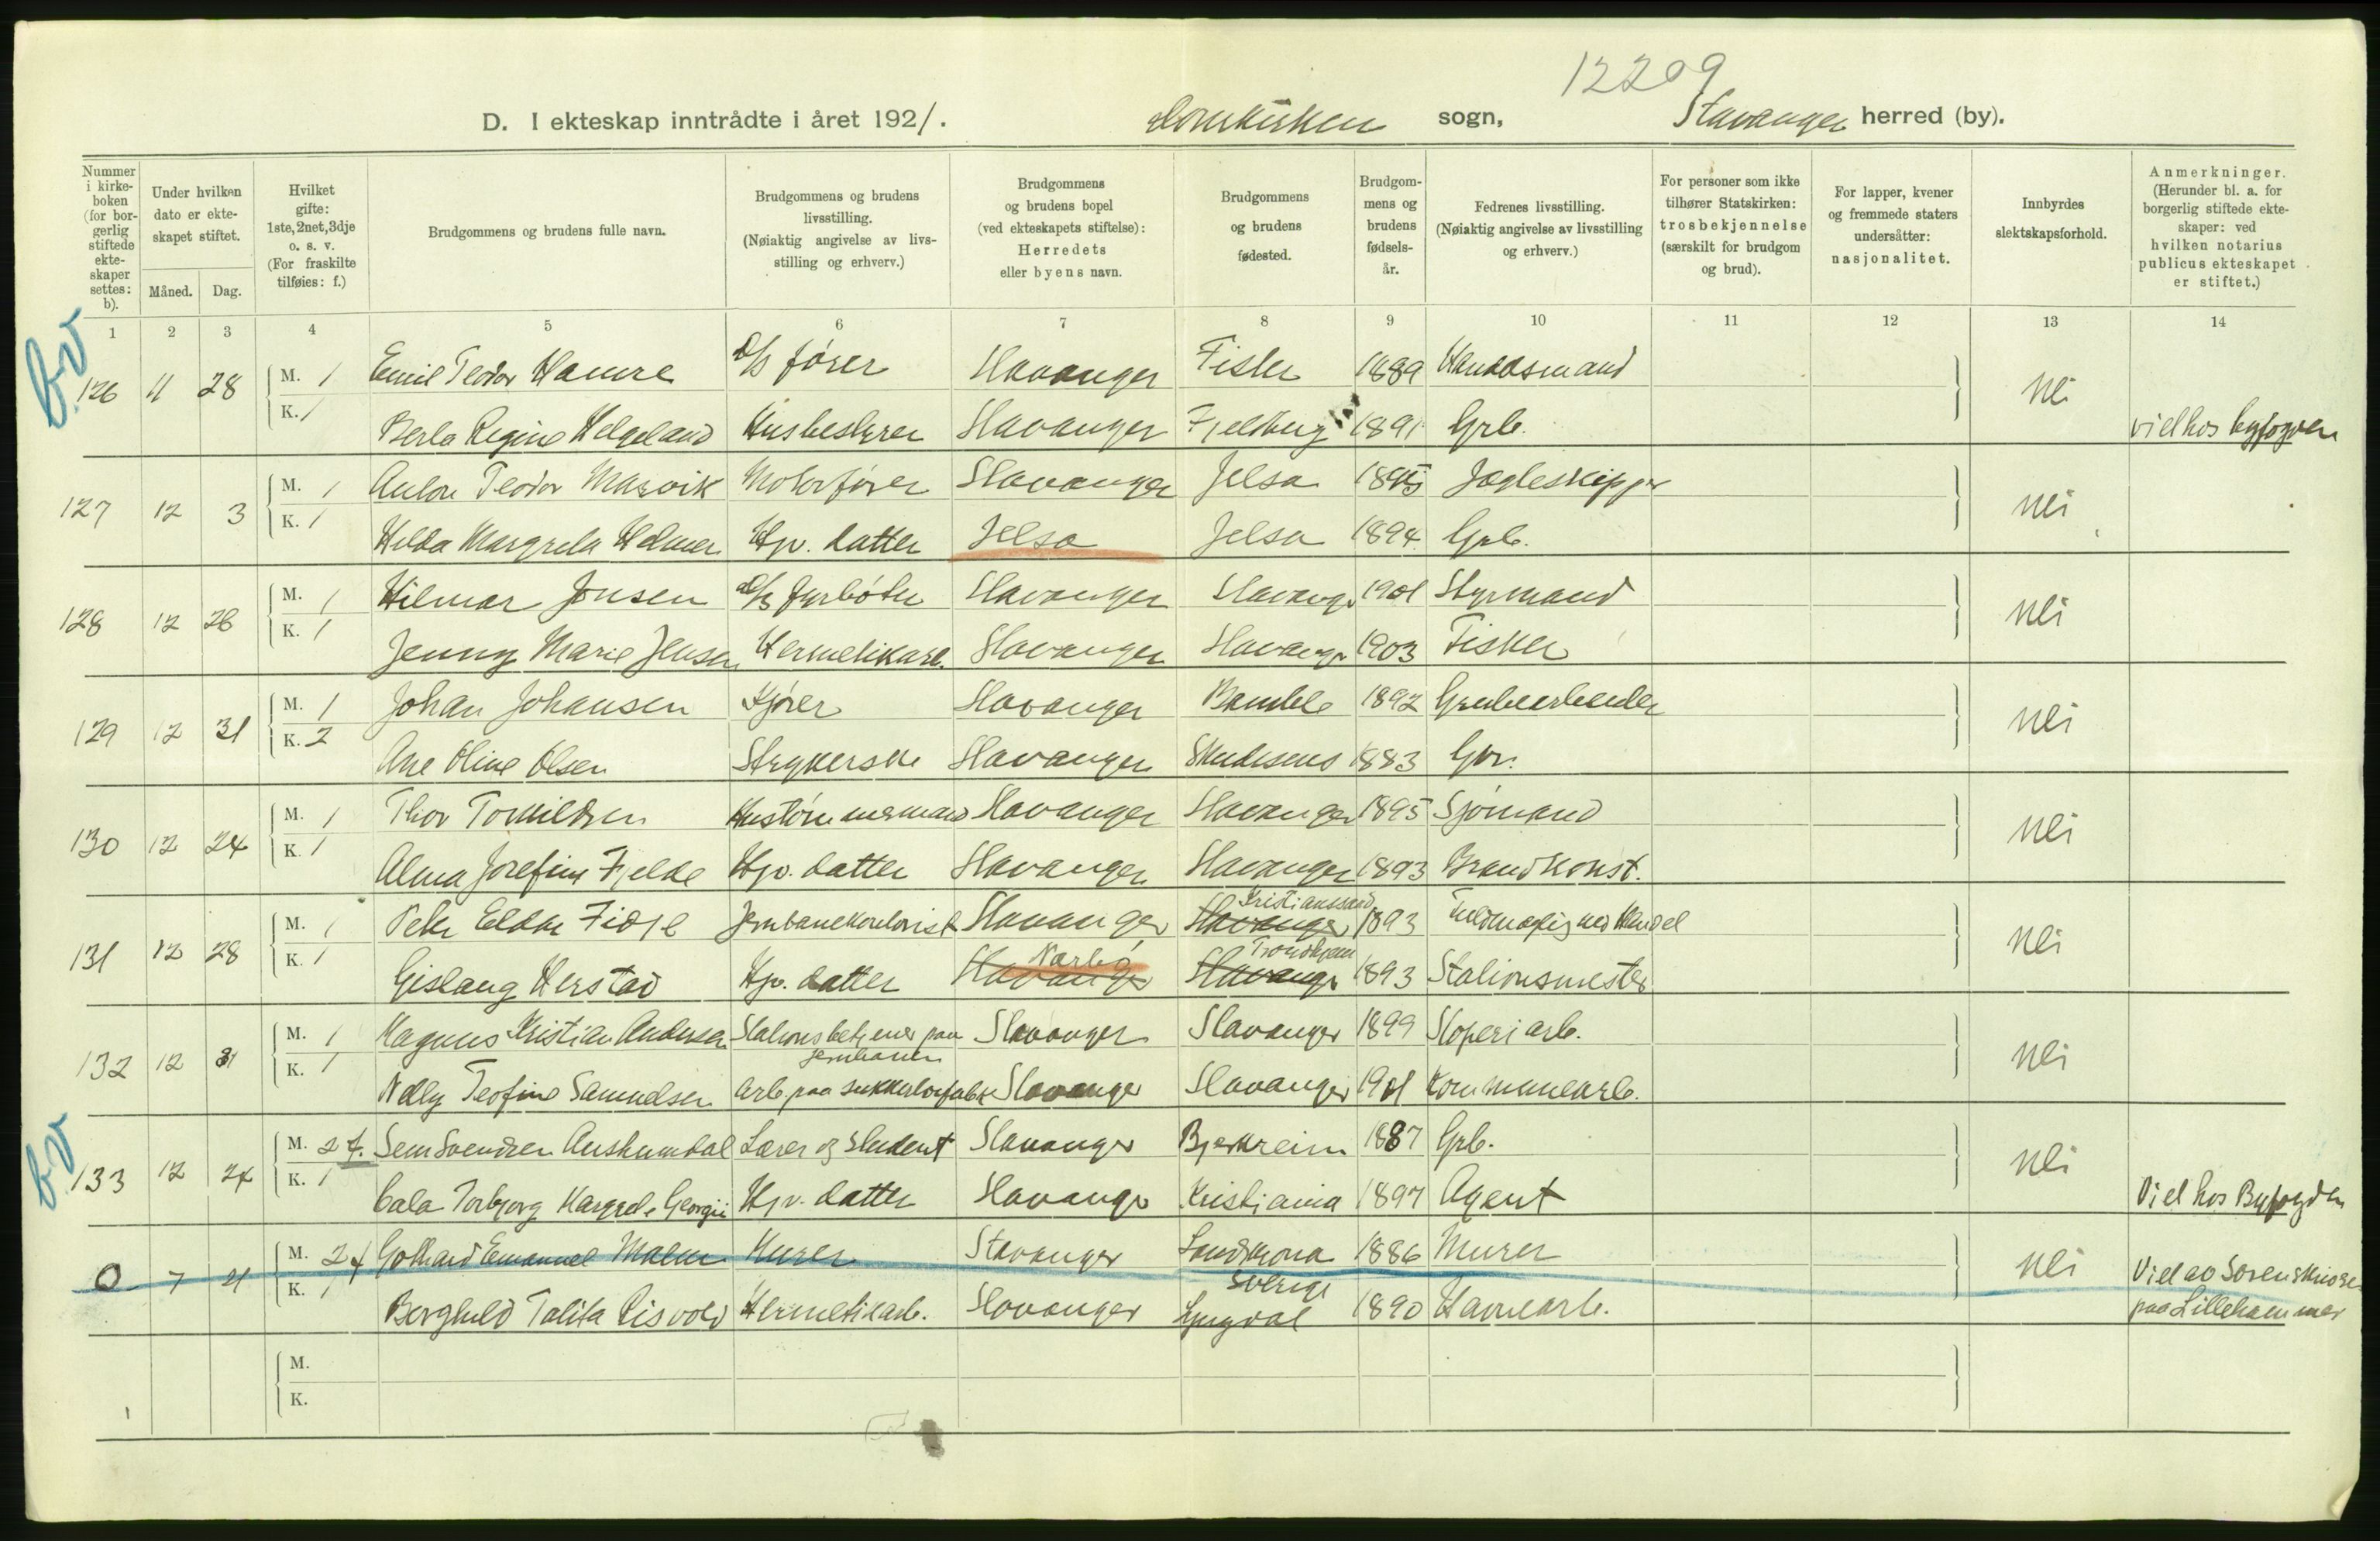 12209
D. I ekteskap inntrådte i året 1921. Domkirken sogn, Stavanger herred (by).
Nummer i kirke-boken (for bor-gerlig stiftede ekte-skaper settes: b).
Under hvilken dato er ekte-skapet stiftet.
Måned. Dag.
Hvilket gifte: 1ste, 2net, 3dje o. s. v. (For fraskilte tilføies: f.)
Brudgommens og brudens fulle navn.
Brudgommens og brudens livsstilling. (Nøiaktig angivelse av livs-stilling og erhverv.)
Brudgommens og brudens bopel (ved ekteskapets stiftelse): Herredets eller byens navn.
Brudgommens og brudens fødested.
Brudgom-mens og brudens fødsels-år.
Fedrenes livsstilling. (Nøiaktig angivelse av livsstilling og erhverv.)
For personer som ikke tilhører Statskirken: trosbekjennelse (særskilt for brudgom og brud).
For lapper, kvener og fremmede staters undersåtter: nasjonalitet.
Innbyrdes slektskapsforhold.
Anmerkninger. (Herunder bl. a. for borgerlig stiftede ekte-skaper: ved hvilken notarius publicus ekteskapet er stiftet.)
1 2 3 4 5 6 7 8 9 10 11 12 13 14
bv
126 11 28 M. 1 Emil Teodor Hamre D/s fører Stavanger 1889 nei
K. 1 Berta Regine Helgeland Husbestyrer Stavanger Fjelberg 1891 Grb. viet hos byfogden
127 12 3 M. 1 Anton Teodor Marvik Motorfører Stavanger Jelsa 1895 Jagteskipper nei
K. 1 Hilda Margreta Helmer Hjv. datter Jelsa Jelsa 1894 Grb.
128 12 28 M. 1 Hilmar Jonsen D/s fyrbøter Stavanger Stavanger 1901 Styrmand nei
K. 1 Jenny Marie Jensen Hermetikarb. Stavanger Stavanger 1903 Fisker
129 12 31 M. 1 Johan Johansen Kjører Stavanger Bamble 1892 Grubearbeider nei
K. 2 Ane Oline Olsen Strykerske Stavanger Skudesnes 1883 Gbr.
130 12 24 M. 1 Thor Tomildsen Hustømmermand Stavanger Stavanger 1895 Sjømand nei
K. 1 Alma Josefine Fjelde Hjv. datter Stavanger Stavanger 1893 Brandkonst.
Kristianssand
131 12 28 M. 1 Peter Eldar Fidje Jernbanekontorist Stavanger Stavanger 1893 nei
Nærbø Trondhjem
K. 1 Gislaug Herstad Hjv. datter Stavanger Stavanger 1893 Stationsmester
132 12 31 M. 1 Magnus Kristian Andersen Stationsbetjener paa jernbanen Stavanger Stavanger 1899 Støperiarb. nei
K. 1 Nelly Teofine Samuelsen Arb. paa sukkertøifabr. Stavanger Stavanger 1901 Kommunearb.
bv
133 12 24 M. 2 f. Sem Svendsen Lærer og student Stavanger Bjerkreim 1887 Grb. nei
K. 1 Torbjørg Margrete Georgii Hjv. datter Stavanger Kristiania 1897 Agent Viet hos Byfogden
0 7 21 M. 2 f Gotthard Emanuel Malm Murer Stavanger Landskrona Sverige 1886 Murer nei Viet av Sorenskriver paa Lillehammer
K. 1 Borghild Talita Risvold Hermetikarb. Stavanger Lyngdal 1890 Havnearb.
M.
K.